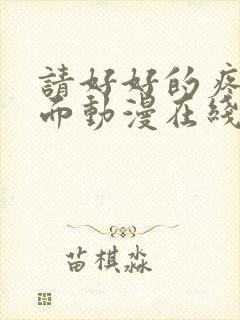 請好好的疼
而動漫在綫
苗棋淼